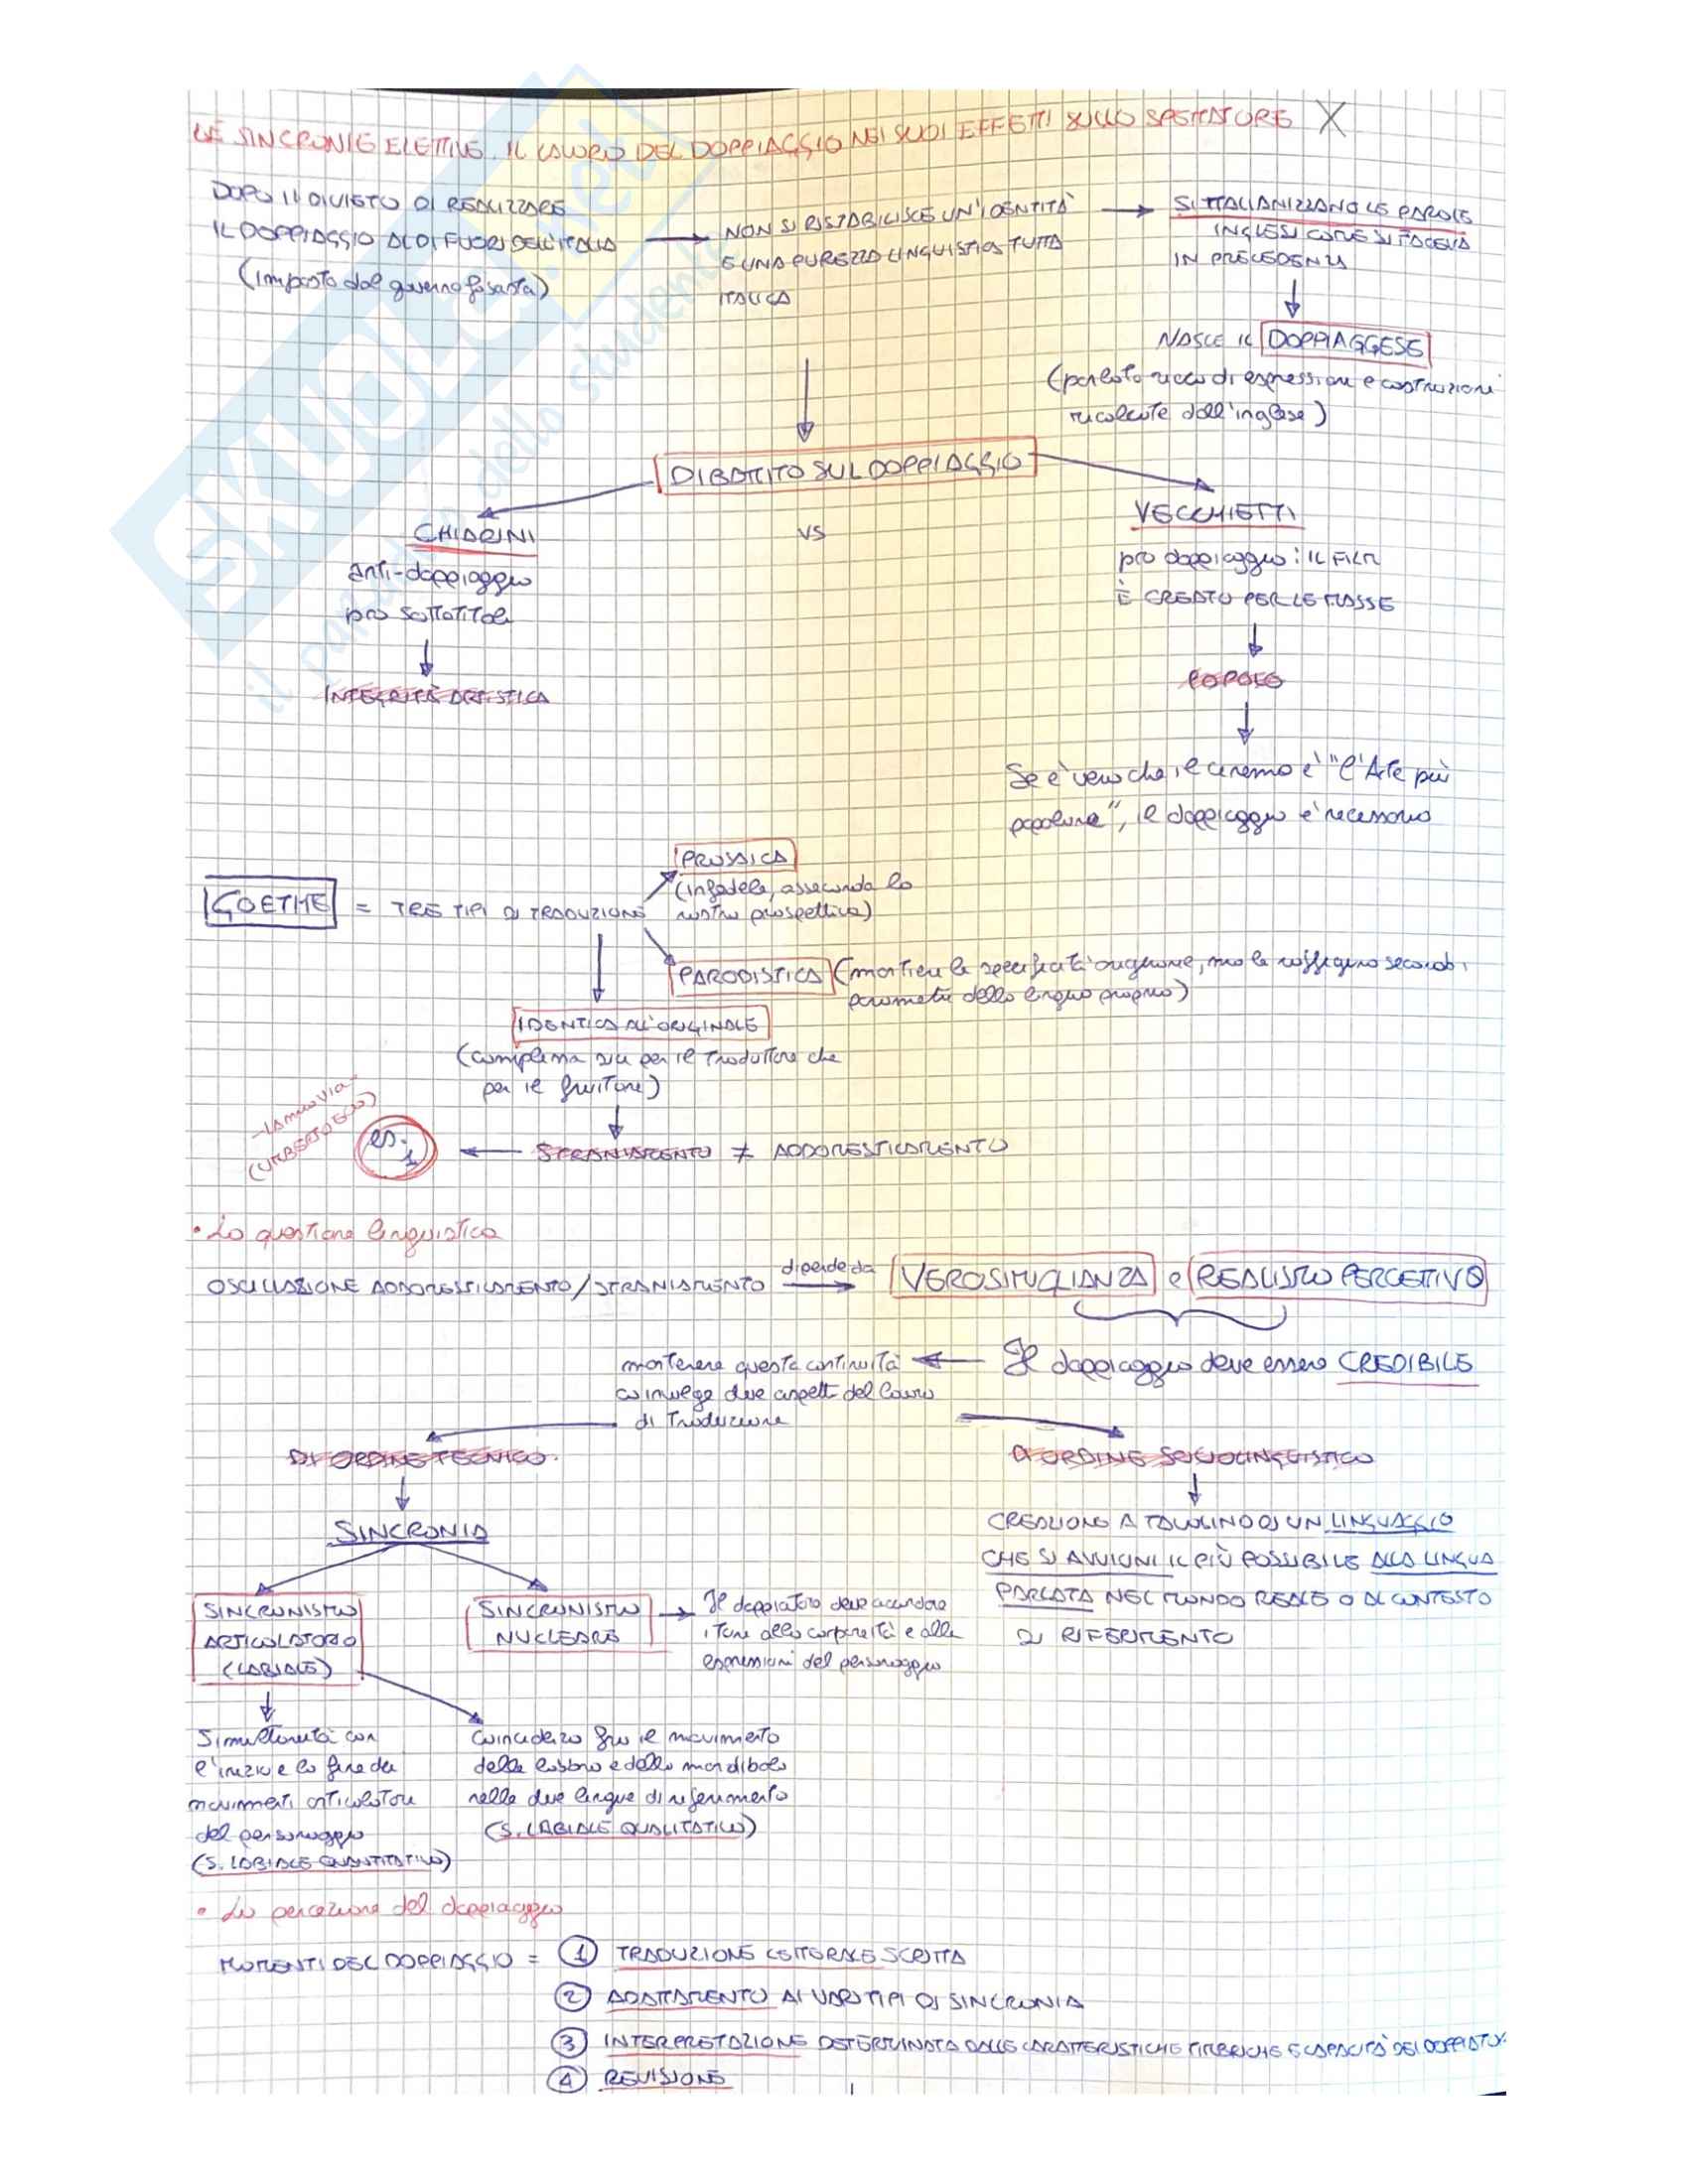 LE SINCRONIE ELETTIVE. IL LAVORO DEL DOPPIAGGIO NEI SUOI EFFETTI SULLO SPETTATORE X
DOPO IL DIVIETO DI REALIZZARE
IL DOPPIAGGIO AL DI FUORI DELL'ITALIA
(imposto dal governo fascista)
NON SI RISTABILISCE UN'IDENTITÀ
E UNA PUREZZA LINGUISTICA TUTTA
ITALICA
SI ITALIANIZZANO LE PAROLE
INGLESI COME SI FACEVA
IN PRECEDENZA
NASCE IL DOPPIAGGESE
(parlato ricco di espressioni e costruzioni
ricalcate dall'inglese)
DIBATTITO SUL DOPPIAGGIO
CHIARINI
VS
VECCHIETTI
anti-doppiaggio
pro sottotitoli
pro doppiaggio: IL FILM
È CREATO PER LE MASSE
INTEGRITÀ ARTISTICA
POPOLO
Se è vero che il cinema è "l'Arte più
popolare", il doppiaggio è necessario
GOETHE = TRE TIPI DI TRADUZIONE
PROSAICA
(infedele, asseconda la
nostra prospettiva)
PARODISTICA (mantiene le specificità originarie, ma le raffigura secondo i
parametri della lingua propria)
IDENTICA ALL'ORIGINALE
(complessa sia per il traduttore che
per il fruitore)
(UMBERTO ECO)
es. 1
STRANIAMENTO ≠ ADDOMESTICAMENTO
• La questione linguistica
OSCILLAZIONE ADDOMESTICAMENTO/STRANIAMENTO dipende da VEROSIMIGLIANZA e REALISMO PERCETTIVO
Il doppiaggio deve essere CREDIBILE
mantenere questa continuità
coinvolge due aspetti del lavoro
di traduzione
DI ORDINE TECNICO
DI ORDINE SOCIOLINGUISTICO
SINCRONIA
CREAZIONE A TAVOLINO DI UN LINGUAGGIO
CHE SI AVVICINI IL PIÙ POSSIBILE ALLA LINGUA
PARLATA NEL MONDO REALE O AL CONTESTO
DI RIFERIMENTO
SINCRONISMO
ARTICOLATORIO
(LABIALE)
SINCRONISMO
NUCLEARE
Il doppiatore deve accordare
i toni alla corporeità e alle
espressioni del personaggio
Simultaneità con
l'inizio e la fine dei
movimenti articolatori
del personaggio
(S. LABIALE QUANTITATIVO)
Coincidenza fra il movimento
delle labbra e della mandibola
nelle due lingue di riferimento
(S. LABIALE QUALITATIVO)
• La percezione del doppiaggio
MOMENTI DEL DOPPIAGGIO = 1 TRADUZIONE LETTERALE SCRITTA
2 ADATTAMENTO AI VARI TIPI DI SINCRONIA
3 INTERPRETAZIONE DETERMINATA DALLE CARATTERISTICHE TIMBRICHE E CAPACITÀ DEI DOPPIATORI
4 REVISIONE
SKUOLA.net
il paradiso dello studente